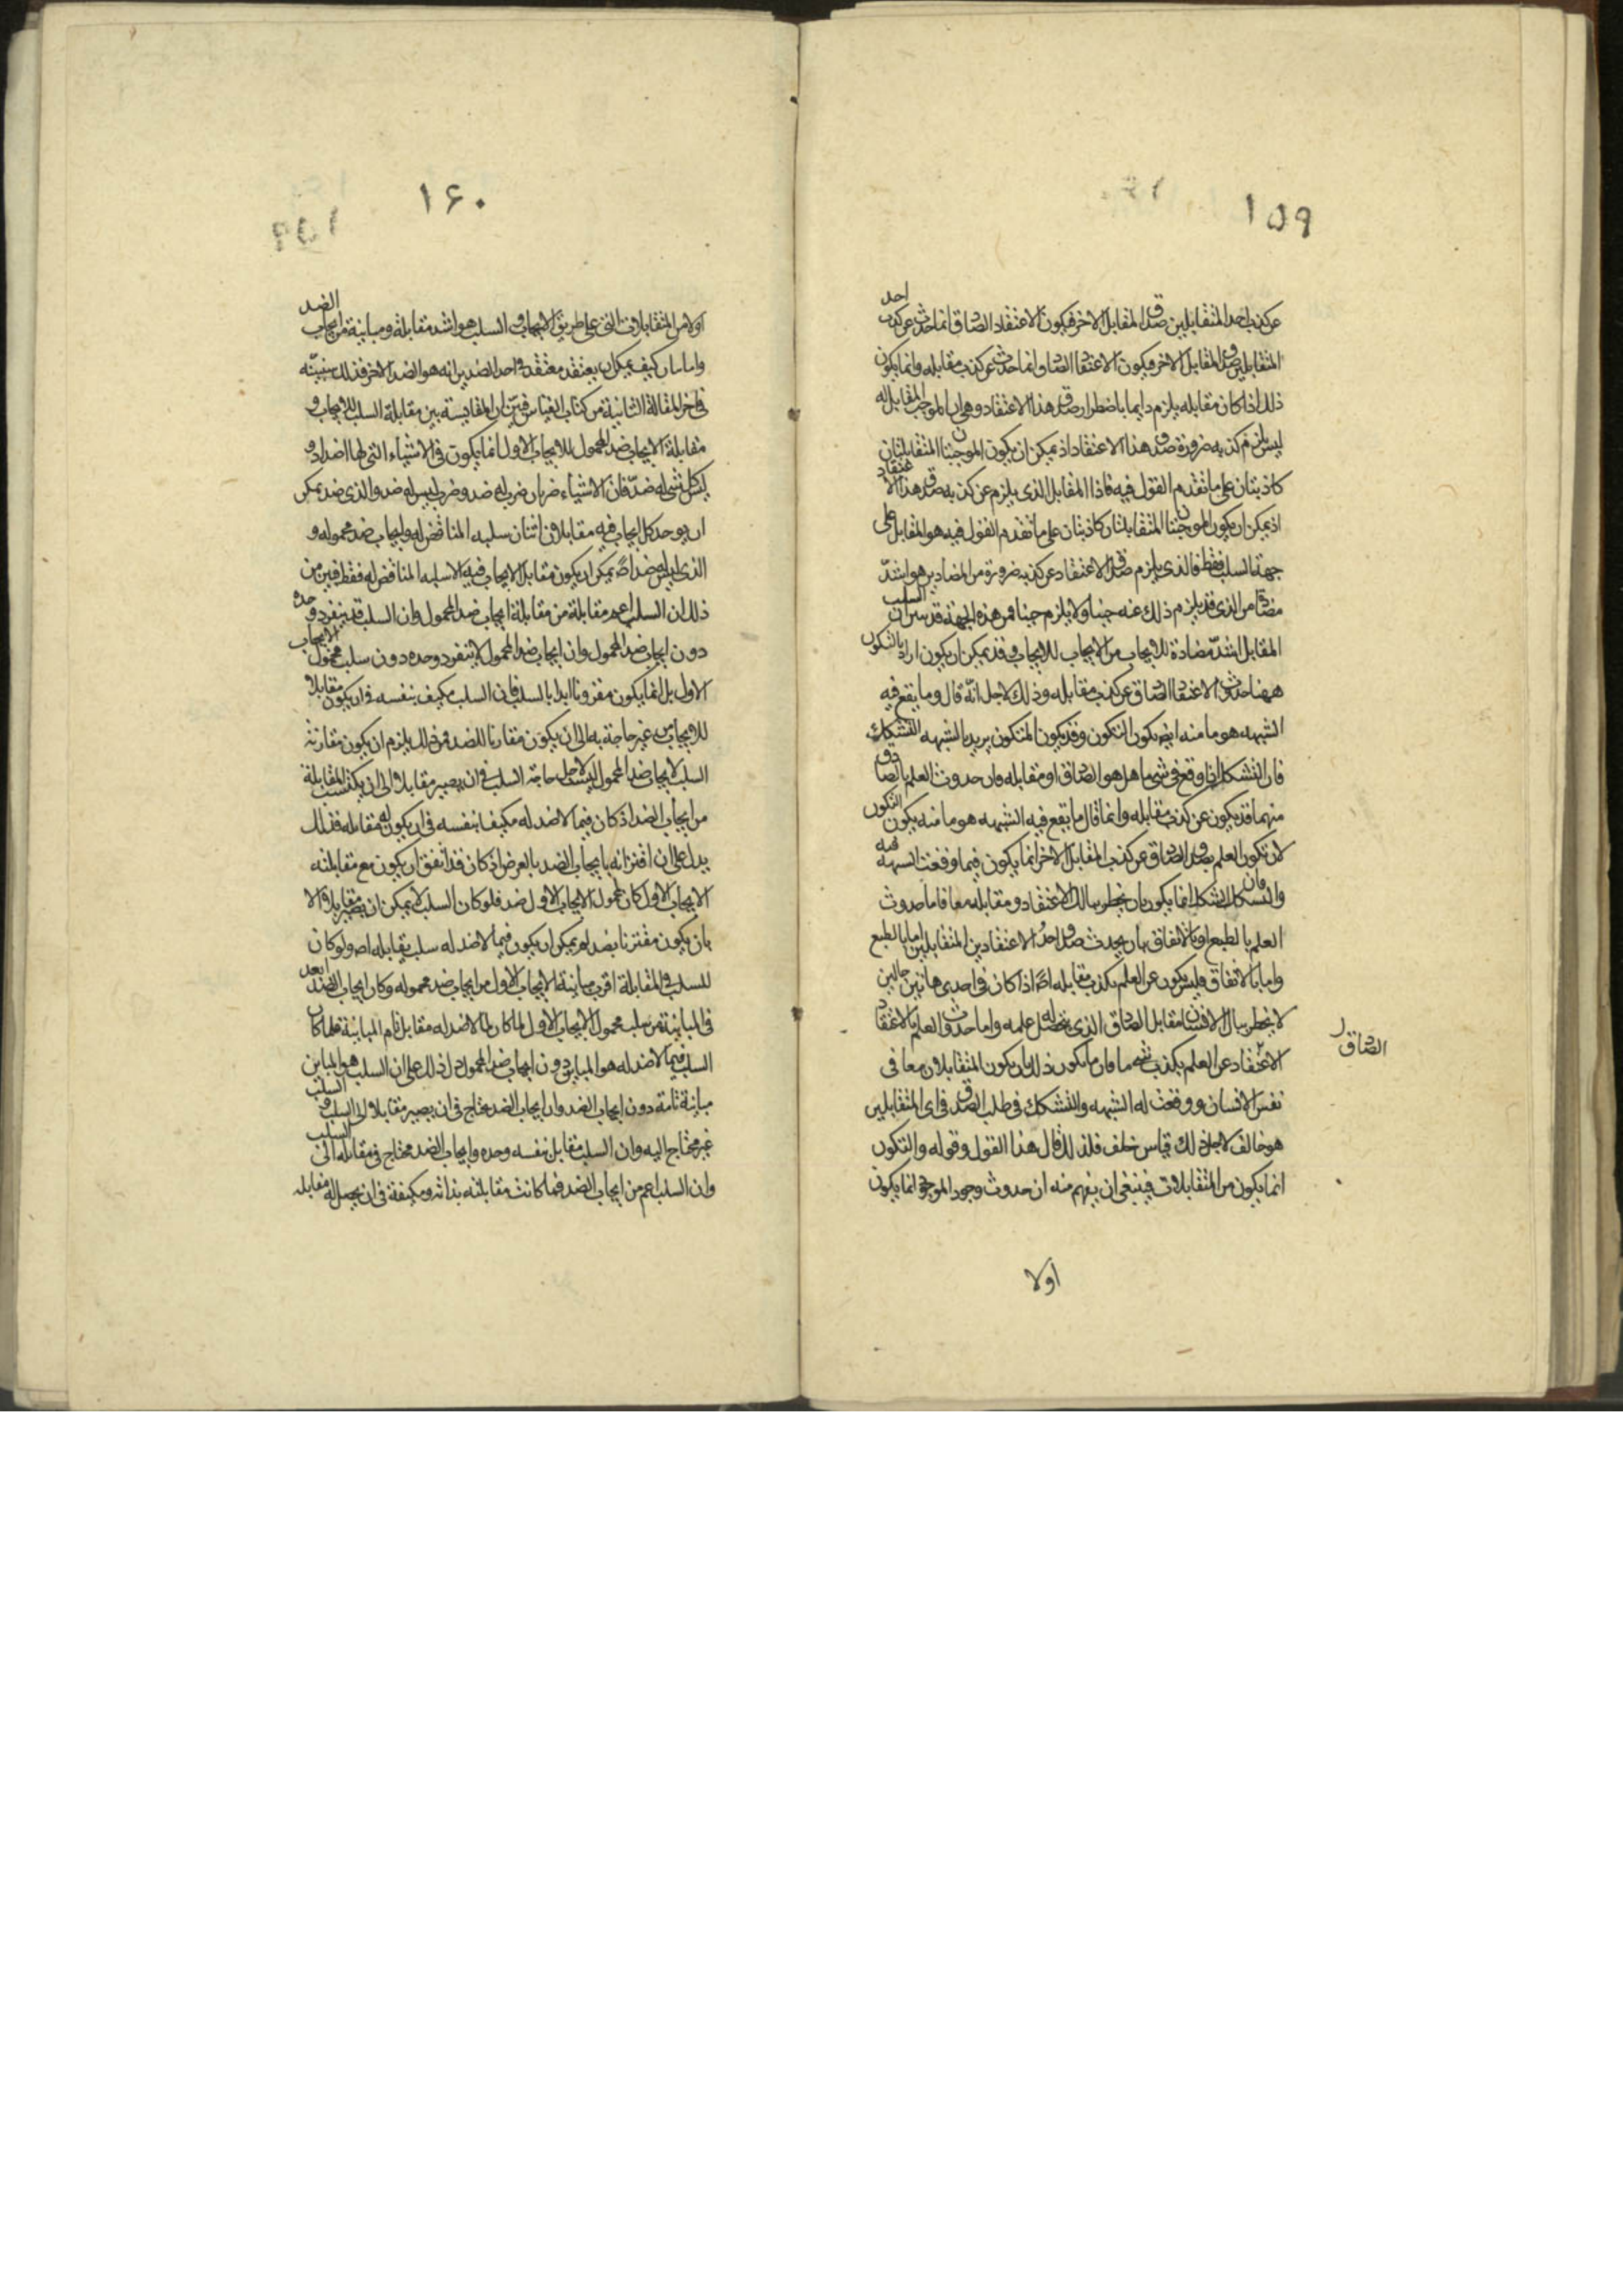 ١۵٩
عن كذب احد المتقابلين صدق المقابل الاخر فيكون الاعتقاد الصادق انما حدث عن كذب احد
المتقابلين صدق المقابل الاخر فيكون الاعتقاد الصادق انما حدث عن كذب مقابله وانما يكون
ذلك اذا كان مقابله يلزم دايما باضطرار صدق هذا الاعتقاد وهو ايجاب الموجب المقابل له
ليس يلزم كذبه ضرورة صدق هذا الاعتقاد اذ يمكن ان يكون الموجبتان المتقابلتان
كاذبتان على ما تقدم القول فيه فاذا المقابل الذى يلزم عن كذبه صدق هذا الاعتقاد
اذ يمكن ان يكون الموجبتان المتقابلتان كاذبتان على ما تقدم القول فيه هو المقابل على
جهة السلب فقط فالذى يلزم صدق الاعتقاد عن كذبه ضرورة من المضادين هو اشدّ
مضادة من الذى قد يلزم ذلك عنه حينا ولا يلزم حينا فمن هذه الجهة قد يبين ان السلب
المقابل اشدّ مضادة للايجاب من الايجاب للايجاب وقد يمكن ان يكون اراد بالتكون
ههنا حدوث الاعتقاد الصادق عن كذب مقابله وذلك لاجل انّه قال وما يقع فيه
الشبهه هو ما منه ايضا يكون التكون وقد يكون المتكون يريد بالشبهه التشكيك
فان التشكك اذا وقع فى شى ما هل هو الصادق او مقابله فان حدوث العلم بالصادق
منهما قد يكون عن كذب مقابله وانما قال ما يقع فيه الشبهه هو ما منه يكون التكون
لان تكون العلم بصدق الصادق عن كذب المقابل الاخر انما يكون فيما وقعت الشبهة فيه
والتشكك فان التشكك انما يكون بان يخطر ببالك الاعتقاد ومقابله معا فاما حدوث
العلم بالطبع او بالاتفاق بان يحدث صدق احد الاعتقادين المتقابلين اما بالطبع
واما بالاتفاق فليس يكون عن العلم بكذب مقابله اصلا اذا كان فى احدى هاتين حالين
لا يخطر ببال الانسان مقابل الصادق الذى يحصل له علمه واما حدوث العلم بالاعتقاد
الصادق
الاعتقاد عن العلم بكذب شى ما فان ما يكون ذلك بان يكون المتقابلان معا فى
نفس الانسان ووقعت له الشبهه والتشكك فى طلب الصدق فى اى المتقابلين
هو خالف لاجل ذلك قياس خلف فلذلك قال هذا القول وقوله والتكون
انما يكون من المتقابلات فينبغى ان يفهم منه ان حدوث وجود الموجود انما يكون
اولا
١۶٠
اولا من المتقابلات التى على طريق الايجاب والسلب هو اشد مقابلة ومباينة من ايجاب الضد
واما بان كيف يمكن ان يعتقد معتقد فى احد الضدين انه هو الضد الاخر فذلك سنبيّنه
فى اخر المقالة الثانية من كتاب القياس فتبيّن ان المقايسة بين مقابلة السلب للايجاب و
مقابلة الايجاب ضد المحمول للايجاب الاول انما يكون فى الاشياء التى لها اضداد و
ليس كل شى له ضدّ فان الاشياء ضربان ضرب له ضد وضرب ليس له ضد والذى ضد يمكن
ان يوجد كل ايجاب فيه مقابلات اثنان سلبه المناقض له وايجاب ضد محموله و
الذى ليس له ضد اصلا يمكن ان يكون مقابل الايجاب فيه الا سلبه المناقض له فقط فبين من
ذلك ان السلب اعم مقابلة من مقابلة ايجاب ضد المحمول وان السلب قد ينفرد وحده
دون ايجاب ضد المحمول وان ايجاب ضد المحمول لا ينفرد وحده دون سلب محمول الايجاب
الاول بل انما يكون مقرونا ابدا بالسلب فان السلب مكيف بنفسه فى ان يكون مقابلا
للايجاب من غير حاجة به الى ان يكون مقارنا للضد فمن ذلك يلزم ان يكون مقارنة
السلب لايجاب ضد المحمول ليس لاجل حاجة السلب فى ان يصير مقابلا الى ان يكتسب المقابلة
من ايجاب الضد اذ كان فيما لا ضد له مكيف بنفسه فى ان يكون له مقابله فذلك
يدل على ان اقترانه بايجاب الضد بالعرض اذ كان قد اتفق ان يكون مع مقابلته
الايجاب الاول كان لمحمول الايجاب الاول ضد فلو كان السلب لا يمكن ان يصير مقابلا الا
بان يكون مقترنا بضد لم يمكن ان يكون فيما لا ضد له سلب يقابله اصلا ولو كان
للسلب فى المقابلة اقرب مباينة الايجاب الاول من ايجاب ضد محموله وكان ايجاب الضد ابعد
فى المباينة من سلب محمول الايجاب الاول لما كان لما لا ضد له مقابل تام المباينة فلما كان
السلب فيما لا ضد له هو المباين دون ايجاب ضد المحمول دل ذلك على ان السلب هو المباين
مباينة تامة دون ايجاب الضد وان ايجاب الضد محتاج فى ان يصير مقابلا الى السلب والسلب
غير محتاج اليه وان السلب مقابل بنفسه وحده وايجاب الضد محتاج فى مقابلته الى السلب
وان السلب اعم من ايجاب الضد فما كانت مقابلته بذاته ومكيفة فى ان يحصل له مقابله